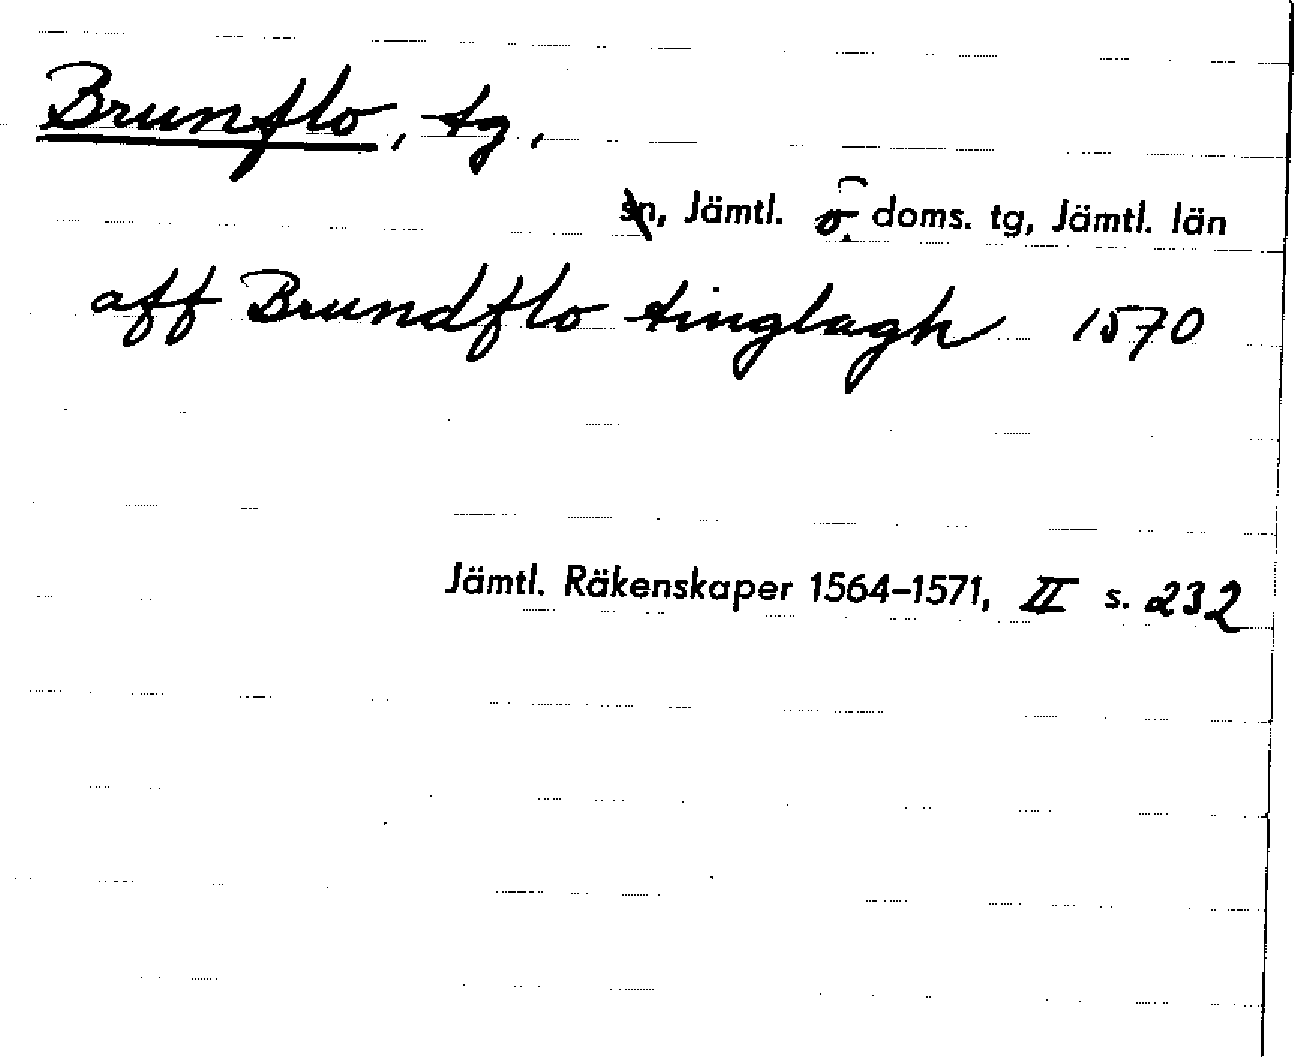 Brunflo, tg.
sn, Jämtl. ö. doms. tg, Jämtl. län
aff Brundflo tinglagh 1570
Jämtl. Räkenskaper 1564–1571, II s. 232